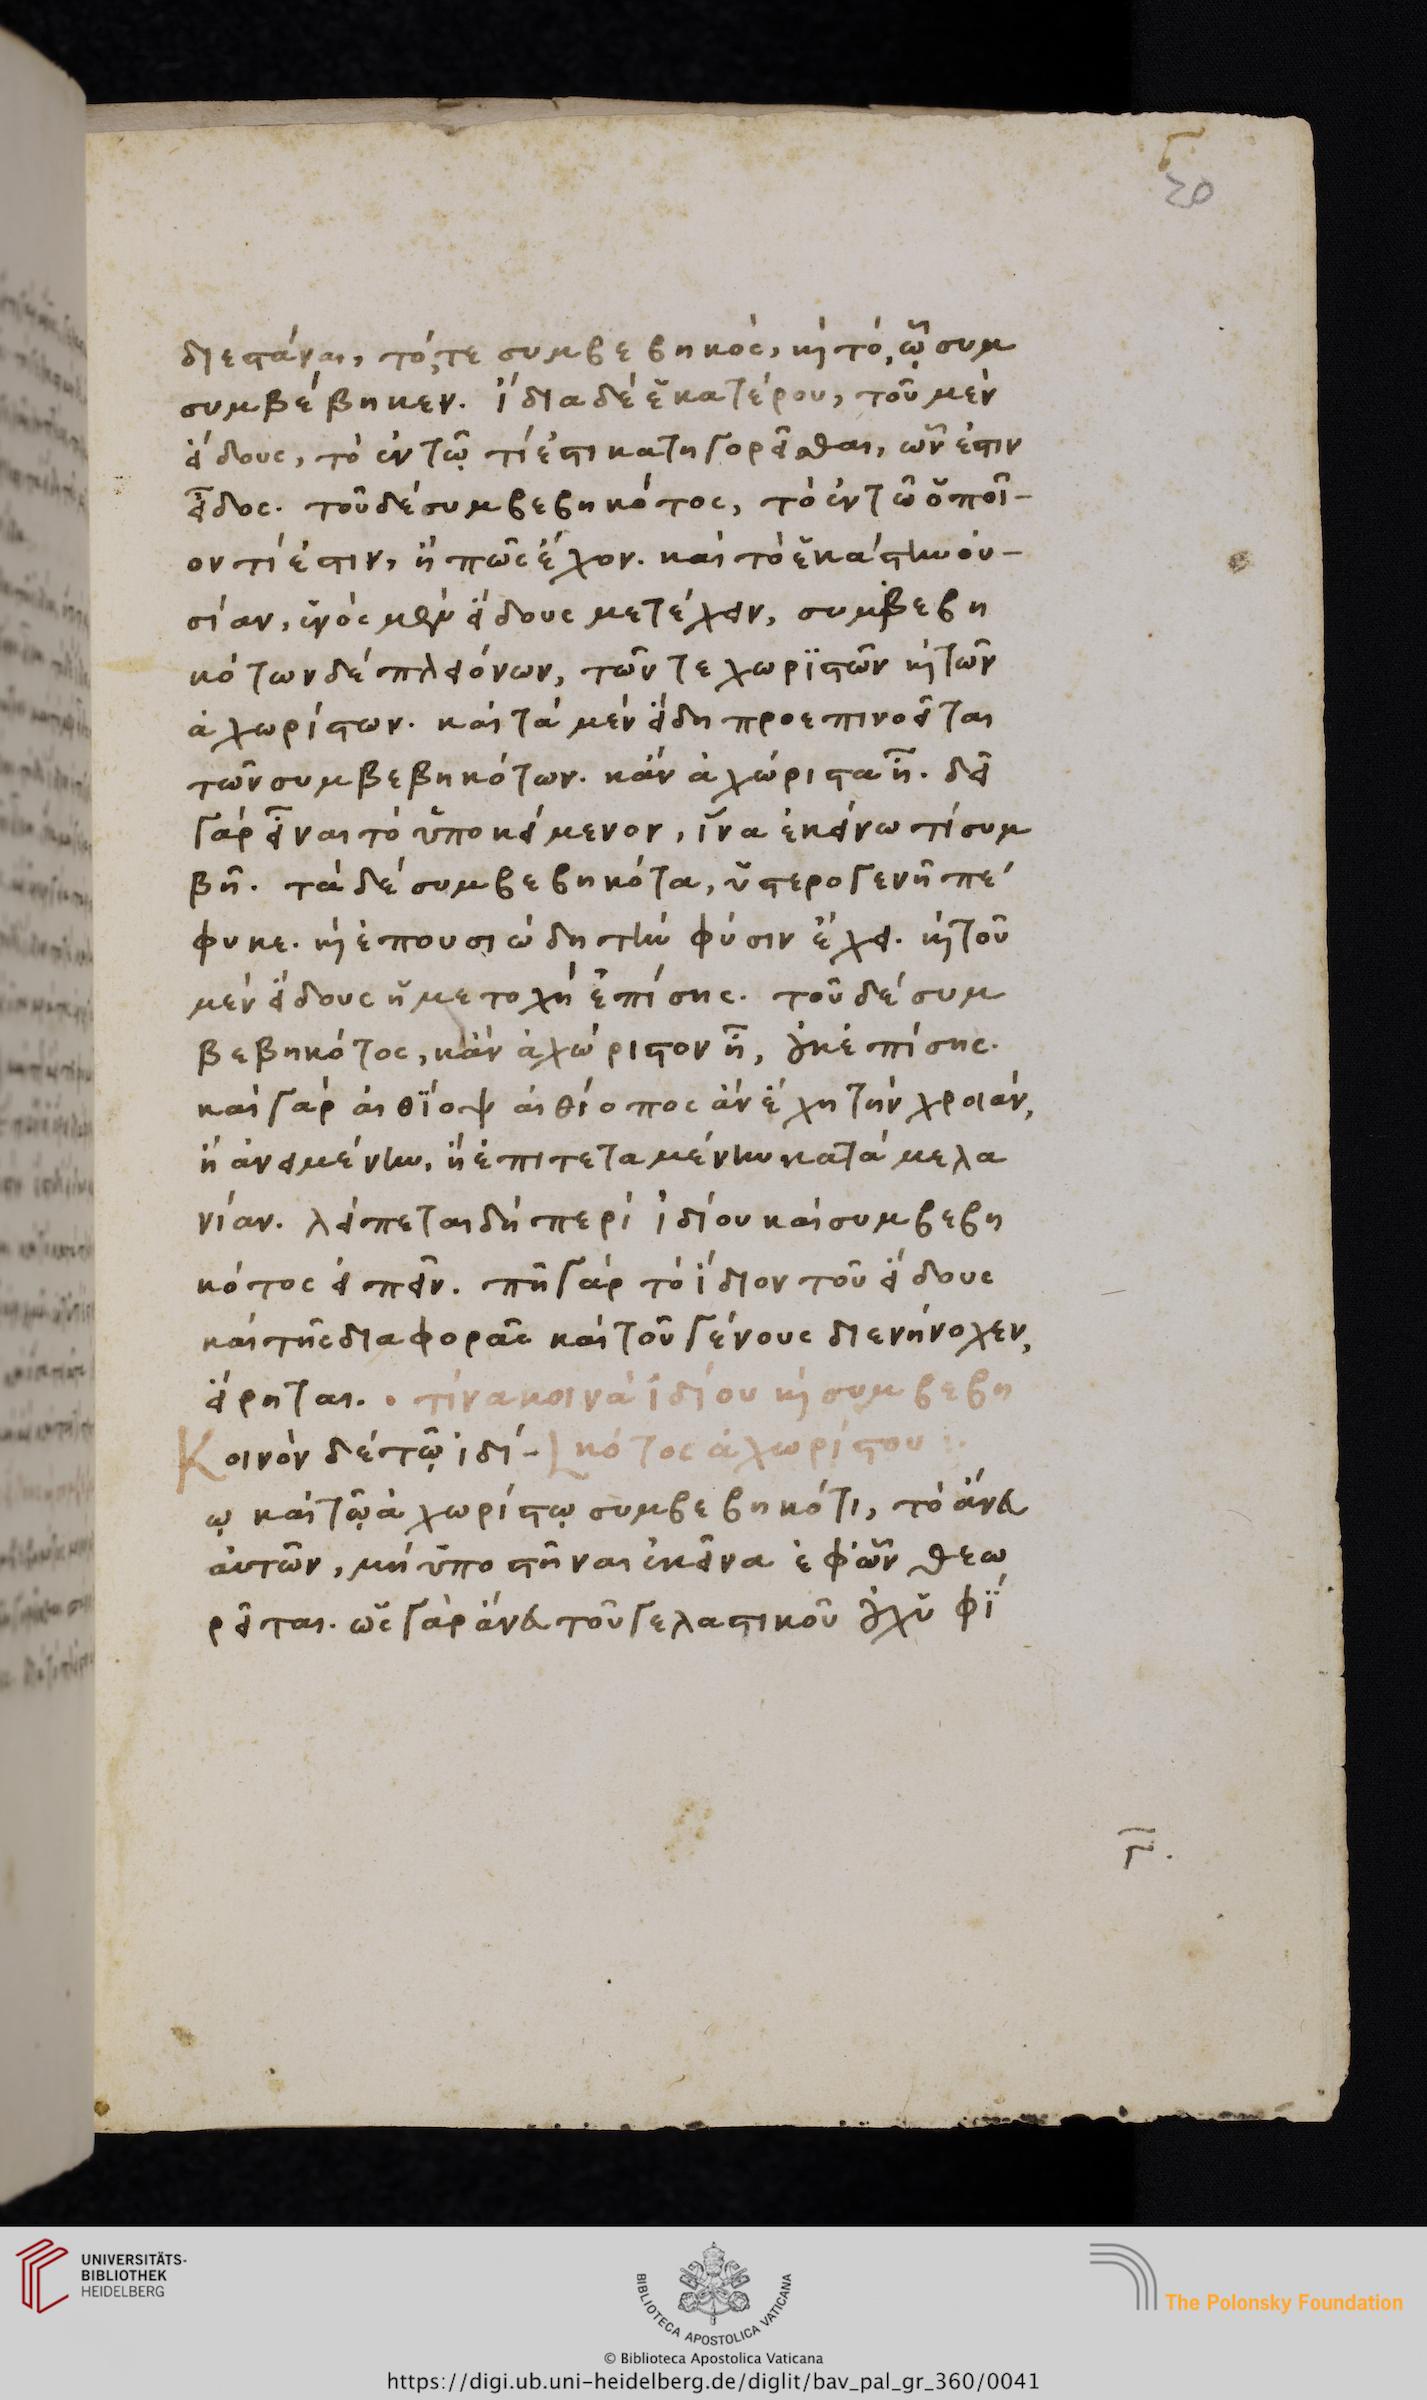 κ
20
διεστάναι, τό, τε συμβεβηκὸς, κὶ τό, ᾧ συμ
συμβέβηκεν. ἴδια δὲ ἑκατέρου, τοῦ μὲν
εἴδους, τὸ ἐν τῷ τί ἐστι κατηγορεῖσθαι, ὧν ἐστιν
εἶδος. τοῦ δὲ συμβεβηκότος, τὸ ἐν τῶ ὁποῖ-
ον τί ἐστιν, ἢ πῶς ἔχον. καὶ τὸ ἑκάστην οὐ-
σίαν, ἑνὸς μὲν εἴδους μετέχειν, συμβεβη
κότων δὲ πλειόνων, τῶν τε χωριστῶν κὶ τῶν
ἀχωρίστων. καὶ τὰ μὲν εἴδη προεπινοεῖται
τῶν συμβεβηκότων. κἂν ἀχώριστα ἦ. δεῖ
γὰρ εἶναι τὸ ὑποκείμενον, ἵνα ἐκείνω τί συμ
βῆ. τὰ δὲ συμβεβηκότα, ὑστερογενῆ πέ
φυκε. κὶ ἐπουσιώδη τὴν φύσιν ἔχει. κὶ τοῦ
μὲν εἴδους ἡ μετοχὴ ἐπίσης. τοῦ δὲ συμ
βεβηκότος, κἂν ἀχώριστον ἦ, οὐκ ἐπίσης.
καὶ γὰρ αἰθίοψ αἰθίοπος ἂν ἔχη τὴν χροιὰν,
ἢ ἀνειμένην, ἢ ἐπιτεταμένην κατὰ μελα
νίαν. λείπεται δὴ περὶ ἰδίου καὶ συμβεβη
κότος εἰπεῖν. πῆ γὰρ τὸ ἴδιον τοῦ εἴδους
καὶ τῆς διαφορᾶς καὶ τοῦ γένους διενήνοχεν,
εἴρηται. • τίνα κοινὰ ἰδίου κὶ συμβεβη
Κοινὸν δὲ τῷ ἰδί- κότος ἀχωρίστου :.
ῳ καὶ τῷ ἀχωρίστῳ συμβεβηκότι, τὸ ἄνευ
αὐτῶν, μὴ ὑποστῆναι ἐκεῖνα ἐφ' ὧν θεω
ρεῖται. ὡς γὰρ ἄνευ τοῦ γελαστικοῦ οὐχ ὑφί
γ.
UNIVERSITÄTS-
BIBLIOTHEK
HEIDELBERG
BIBLIOTECA APOSTOLICA VATICANA
The Polonsky Foundation
© Biblioteca Apostolica Vaticana
https://digi.ub.uni-heidelberg.de/diglit/bav_pal_gr_360/0041